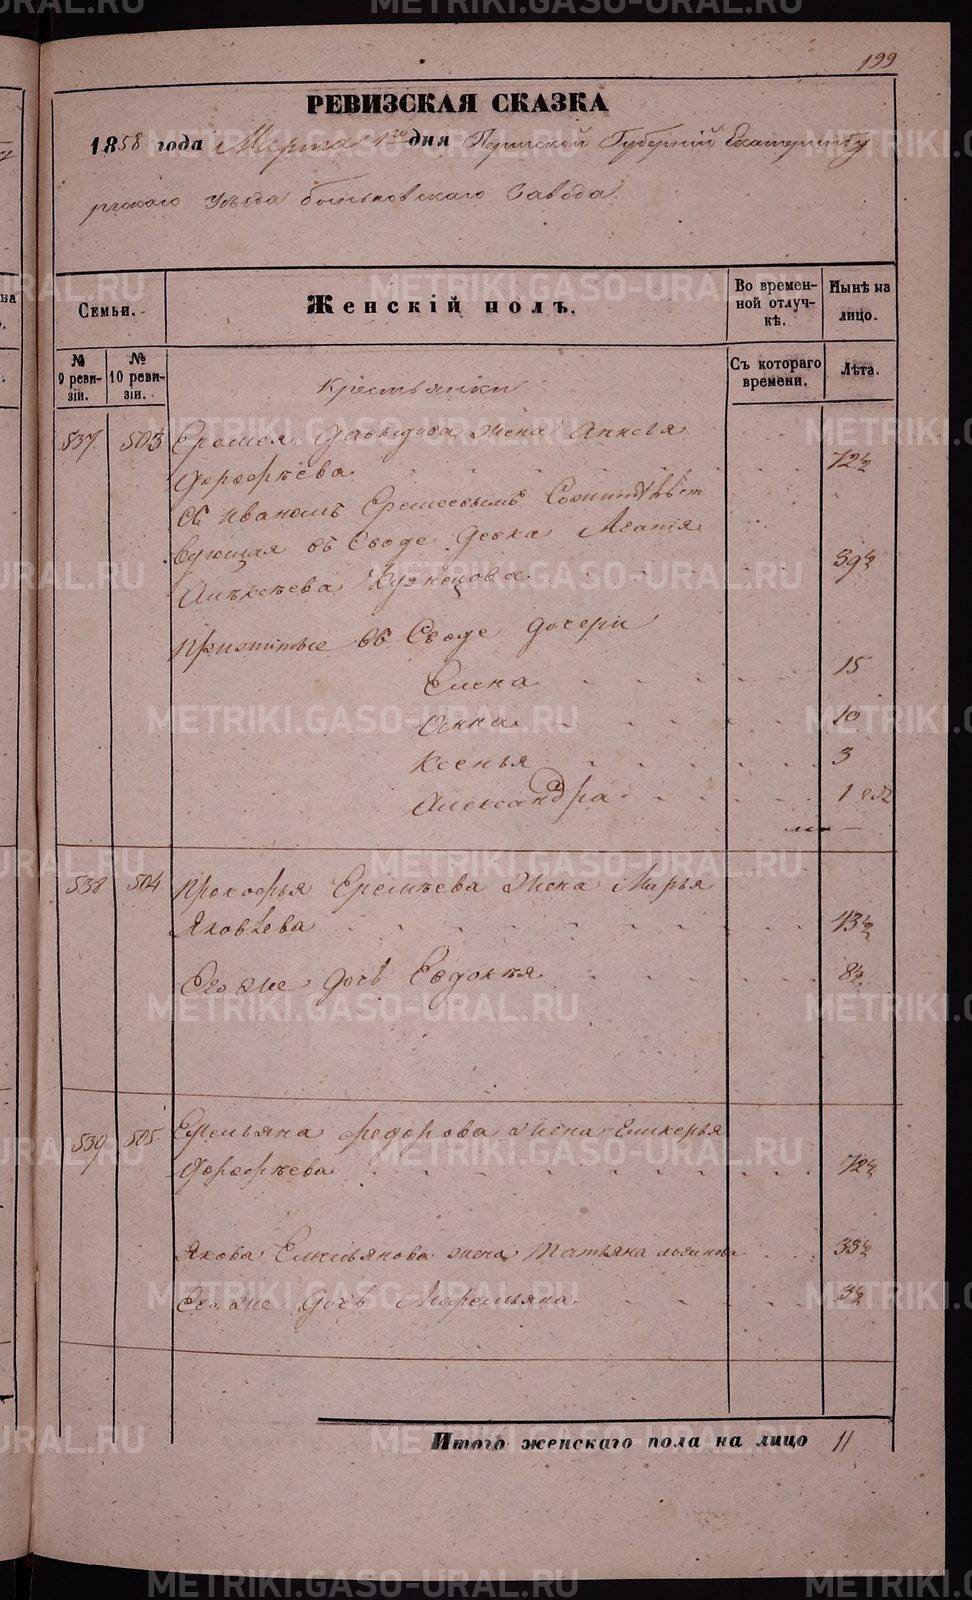 199
РЕВИЗСКАЯ СКАЗКА
1858 года Марта 1го дня Пермской Губерніи Екатеринбу
ргскаго Уѣзда Завода
Семьи.
Женскій полъ.
Во времен-
ной отлуч-
кѣ.
Нынѣ на
лицо.
№
9 реви-
зіи.
№
10 реви-
зіи.
Съ котораго
времени.
Лѣта.
Крестьянки
537 503 Еремея Давыдова жена
Дорофѣева 72
Съ Иваномъ Еремеевымъ
въ Сводѣ девка Агафія
Алексѣева Кузнецова 39
Прижитые въ Сводѣ дочери
Елена 15
Анна 10
Ксенья 3
Александра 1
538 504 Прокофья Еремѣева жена Марья
Яковлева 43
Его же дочь Евдокѣя 8
539 505 Емельяна Федорова жена Гликерья
Дорофѣева 72
Якова Емельянова жена Татьяна 33
Его же дочь Маремьяна 3
Итого женскаго пола на лицо 11
METRIKI.GASO-URAL.RU